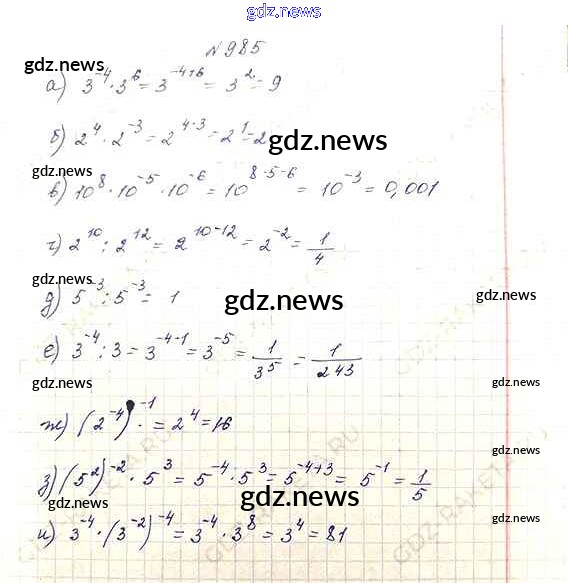 gdz.news
№985
gdz.news
а) 3⁻⁴·3⁶ = 3⁻⁴⁺⁶ = 3² = 9
б) 2⁴·2⁻³ = 2⁴⁻³ = 2¹ = 2
gdz.news
gdz.news
в) 10⁸·10⁻⁵·10⁻⁶ = 10⁸⁻⁵⁻⁶ = 10⁻³ = 0,001
г) 2¹⁰ : 2¹² = 2¹⁰⁻¹² = 2⁻² = 1/4
gdz.news
д) 5⁻³ : 5⁻³ = 1
gdz.news
gdz.news
е) 3⁻⁴ : 3 = 3⁻⁴⁻¹ = 3⁻⁵ = 1/3⁵ = 1/243
gdz.news
gdz.news
ж) (2⁻⁴)⁻¹ = 2⁴ = 16
gdz.news
з) (5²)⁻² · 5³ = 5⁻⁴·5³ = 5⁻⁴⁺³ = 5⁻¹ = 1/5
gdz.news
gdz.news
gdz.news
и) 3⁻⁴·(3⁻²)⁻⁴ = 3⁻⁴·3⁸ = 3⁴ = 81